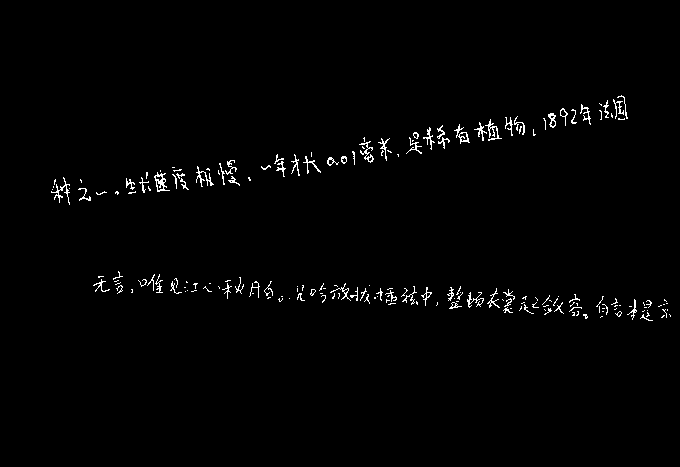 种之一。生长速度相慢，一年才长0.01毫米，是稀有植物，1892年法国
无言，唯见江心秋月白。沉吟放拔插弦中，整顿衣裳起敛容。自言本是京